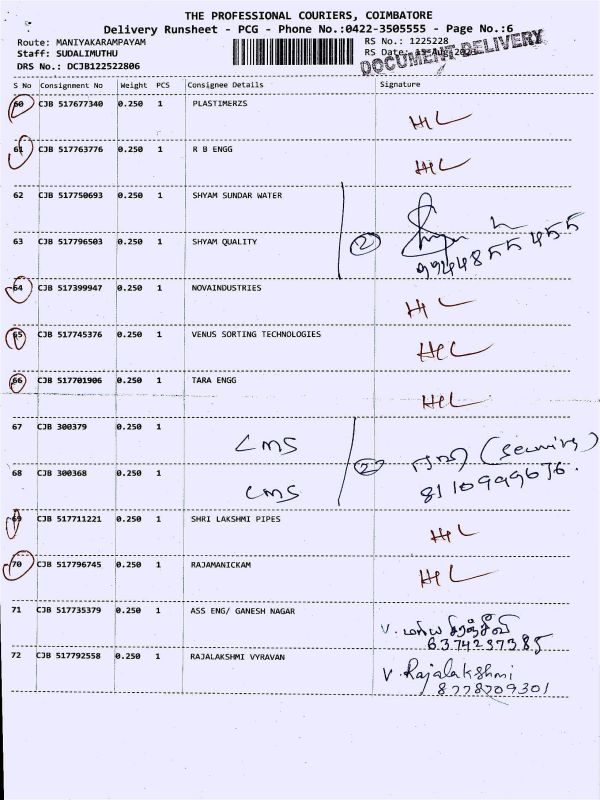 THE PROFESSIONAL COURIERS, COIMBATORE
Delivery Runsheet - PCG - Phone No.:0422-3505555 - Page No.:6
Route: MANIYAKARAMPAYAM RS No.: 1225228
Staff: SUDALIMUTHU RS Date:
DOCUMENT DELIVERY
DRS No.: DCJB122522806
S No Consignment No Weight PCS Consignee Details Signature
60 CJB 517677340 0.250 1 PLASTIMERZS HL
61 CJB 517763776 0.250 1 R B ENGG HL
62 CJB 517750693 0.250 1 SHYAM SUNDAR WATER
63 CJB 517796503 0.250 1 SHYAM QUALITY 2 9944855455
64 CJB 517399947 0.250 1 NOVAINDUSTRIES HL
65 CJB 517745376 0.250 1 VENUS SORTING TECHNOLOGIES HL
66 CJB 517701906 0.250 1 TARA ENGG HL
67 CJB 300379 0.250 1 LMS
68 CJB 300368 0.250 1 LMS 2
69 CJB 517711221 0.250 1 SHRI LAKSHMI PIPES HL
70 CJB 517796745 0.250 1 RAJAMANICKAM HL
71 CJB 517735379 0.250 1 ASS ENG/ GANESH NAGAR V.
6374237385
72 CJB 517792558 0.250 1 RAJALAKSHMI VYRAVAN V. Rajalakshmi
8778709301